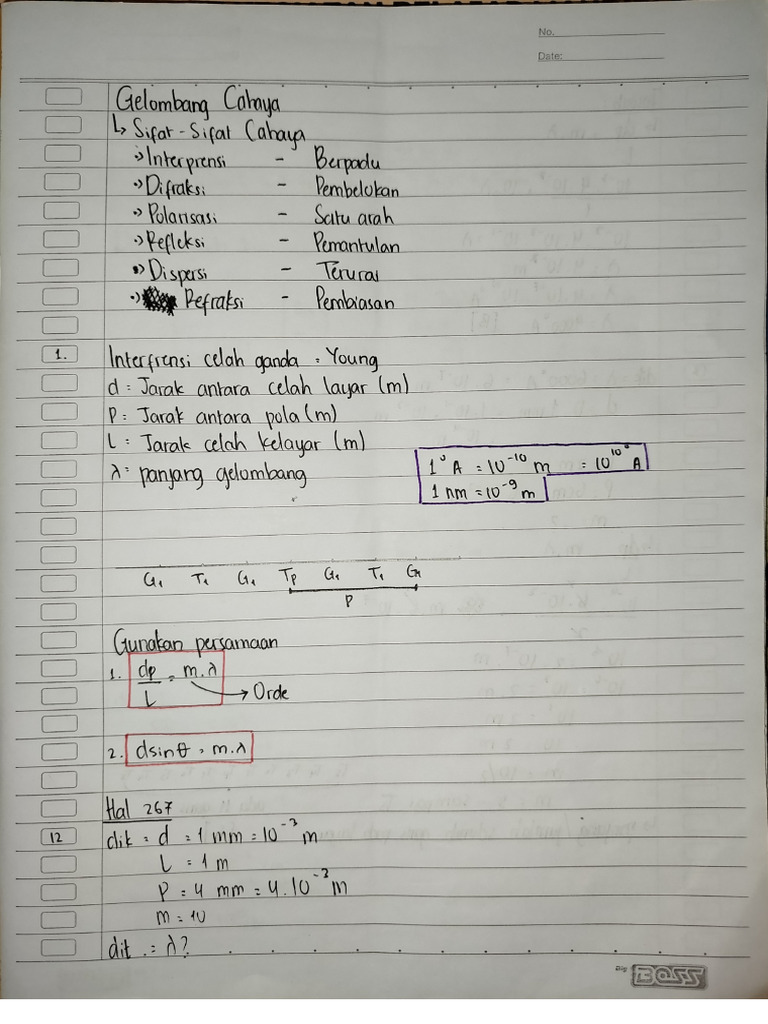 No.
Date:
Gelombang Cahaya
↳ Sifat-Sifat Cahaya
•) Interprensi - Berpadu
•) Difraksi - Pembelokan
•) Polarisasi - Satu arah
•) Refleksi - Pemantulan
•) Dispersi - Terurai
•) Refraksi - Pembiasan
1. Interfrensi celah ganda = Young
d = Jarak antara celah layar (m)
P = Jarak antara pola (m)
L = Jarak celah kelayar (m)
λ = panjang gelombang
1°A = 10⁻¹⁰ m = 10¹⁰ °A
1 nm = 10⁻⁹ m
G₁ T₁ G₁ Tp G₁ T₁
P
Gunakan persamaan
1. dp/L = m.λ → Orde
2. d sin θ = m.λ
Hal 267
12 dik = d = 1 mm = 10⁻³ m
L = 1 m
P = 4 mm = 4.10⁻³ m
m = 10
dit = λ?
Big BOSS